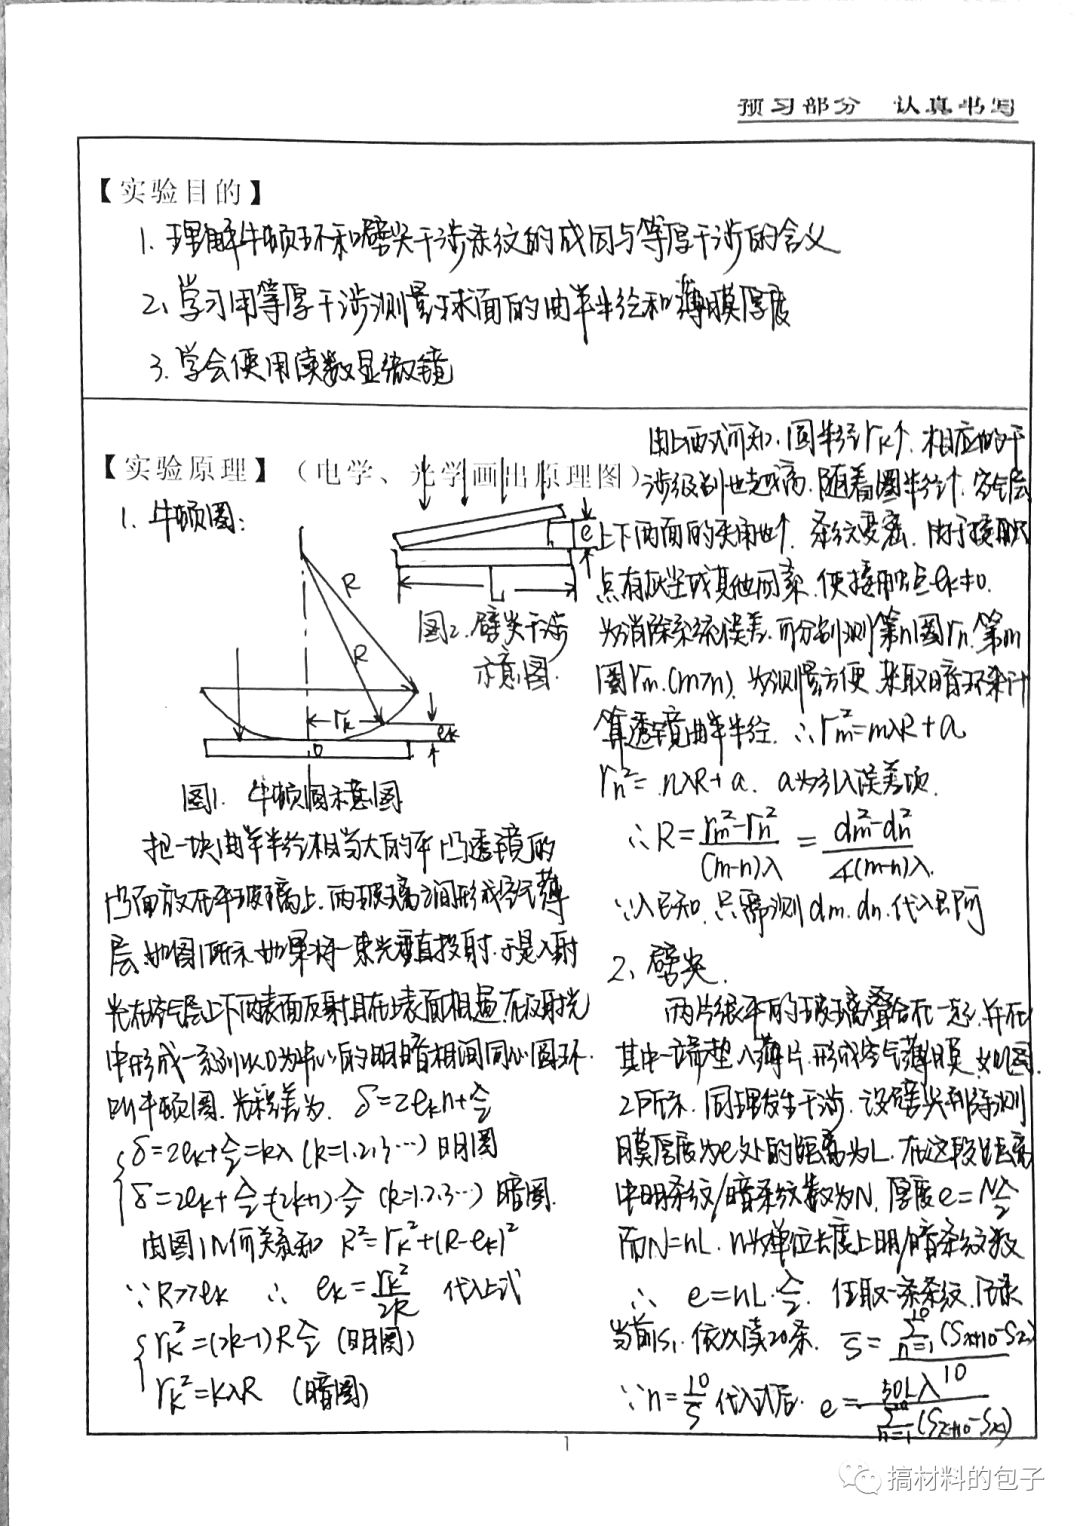 预习部分 认真书写
【实验目的】
1. 理解牛顿环和劈尖干涉条纹的成因与等厚干涉的含义
2. 学习用等厚干涉测量球面的曲率半径和薄膜厚度
3. 学会使用读数显微镜
【实验原理】(电学、光学画出原理图)
1. 牛顿圈:
R
R
rk
ek
O
图1. 牛顿圈示意图
e
L
图2. 劈尖干涉
示意图.
把一块曲率半径相当大的平凸透镜的
凸面放在平玻璃上. 两玻璃之间形成空气薄
层. 如图1所示. 如果将一束光垂直投射. 于是入射
光在空气层上下两表面反射且在上表面相遇. 在反射光
中形成一系列以O为中心的明暗相间同心圆环.
叫牛顿圈. 光程差为. δ=2ekn+λ/2
δ=2ek+λ/2=kλ (k=1.2.3…) 明圈
δ=2ek+λ/2=(2k+1)·λ/2 (k=1.2.3…) 暗圈.
由图1几何关系知 R²=rk²+(R-ek)²
∵R>>ek ∴ ek=rk²/2R 代入上式
rk²=(2k-1)Rλ/2 (明圈)
rk²=kλR (暗圈)
由上面式可知. 圆半径rk↑. 相应的干
涉级别也越高. 随着圈半径↑. 空气层
上下两面的夹角也↑. 条纹变密. 由于接触
点有灰尘或其他因素. 使接触点ek≠0.
为消除系统误差. 可分别测第n圈rn. 第m
圈rm. (m>n). 为测量方便. 采取暗环来计
算透镜曲率半径. ∴rm²=mλR+a
rn²=nλR+a. a为引入误差项.
∴R=(rm²-rn²)/(m-n)λ=(dm²-dn²)/4(m-n)λ.
∵λ已知. 只需测dm. dn. 代入即可
2. 劈尖.
两片很平的玻璃叠合在一起. 并在
其中一端垫入薄片. 形成空气薄膜. 如图
2所示. 同理发生干涉. 设劈尖到待测
膜厚度为e处的距离为L. 在这段距离
中明条纹/暗条纹数为N. 厚度e=Nλ/2
而N=nL. n为单位长度上明/暗条纹数
∴ e=nL·λ/2. 任取一条条纹. 记录
当前s₁. 依次读20条.
∵n=10/S 代入式后.
1
搞材料的包子